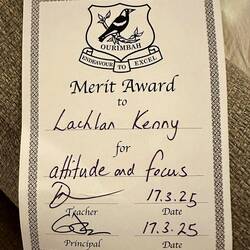 OURIMBAH
ENDEAVOUR TO EXCEL
Merit Award
to
Lachlan Kenny
for
attitude and focus
17.3.25
Teacher Date
17.3.25
Principal Date